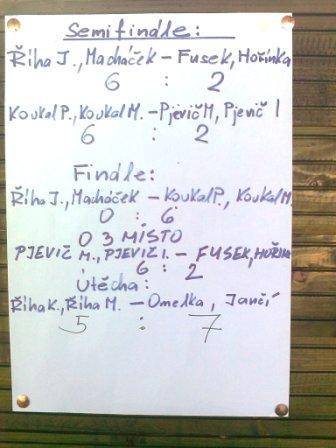 Semifinále:
Říha J., Macháček - Fusek, Hořínka
6 : 2
Koukal P., Koukal M. - Pjevič M, Pjevič I
6 : 2
Finále:
Říha J., Macháček - Koukal P., Koukal M.
0 : 6
O 3 MÍSTO
PJEVIČ M., PJEVIČ I. - FUSEK, HOŘÍNKA
6 : 2
Útěcha:
Říha K., Říha M. - Omelka, Jančí
5 : 7